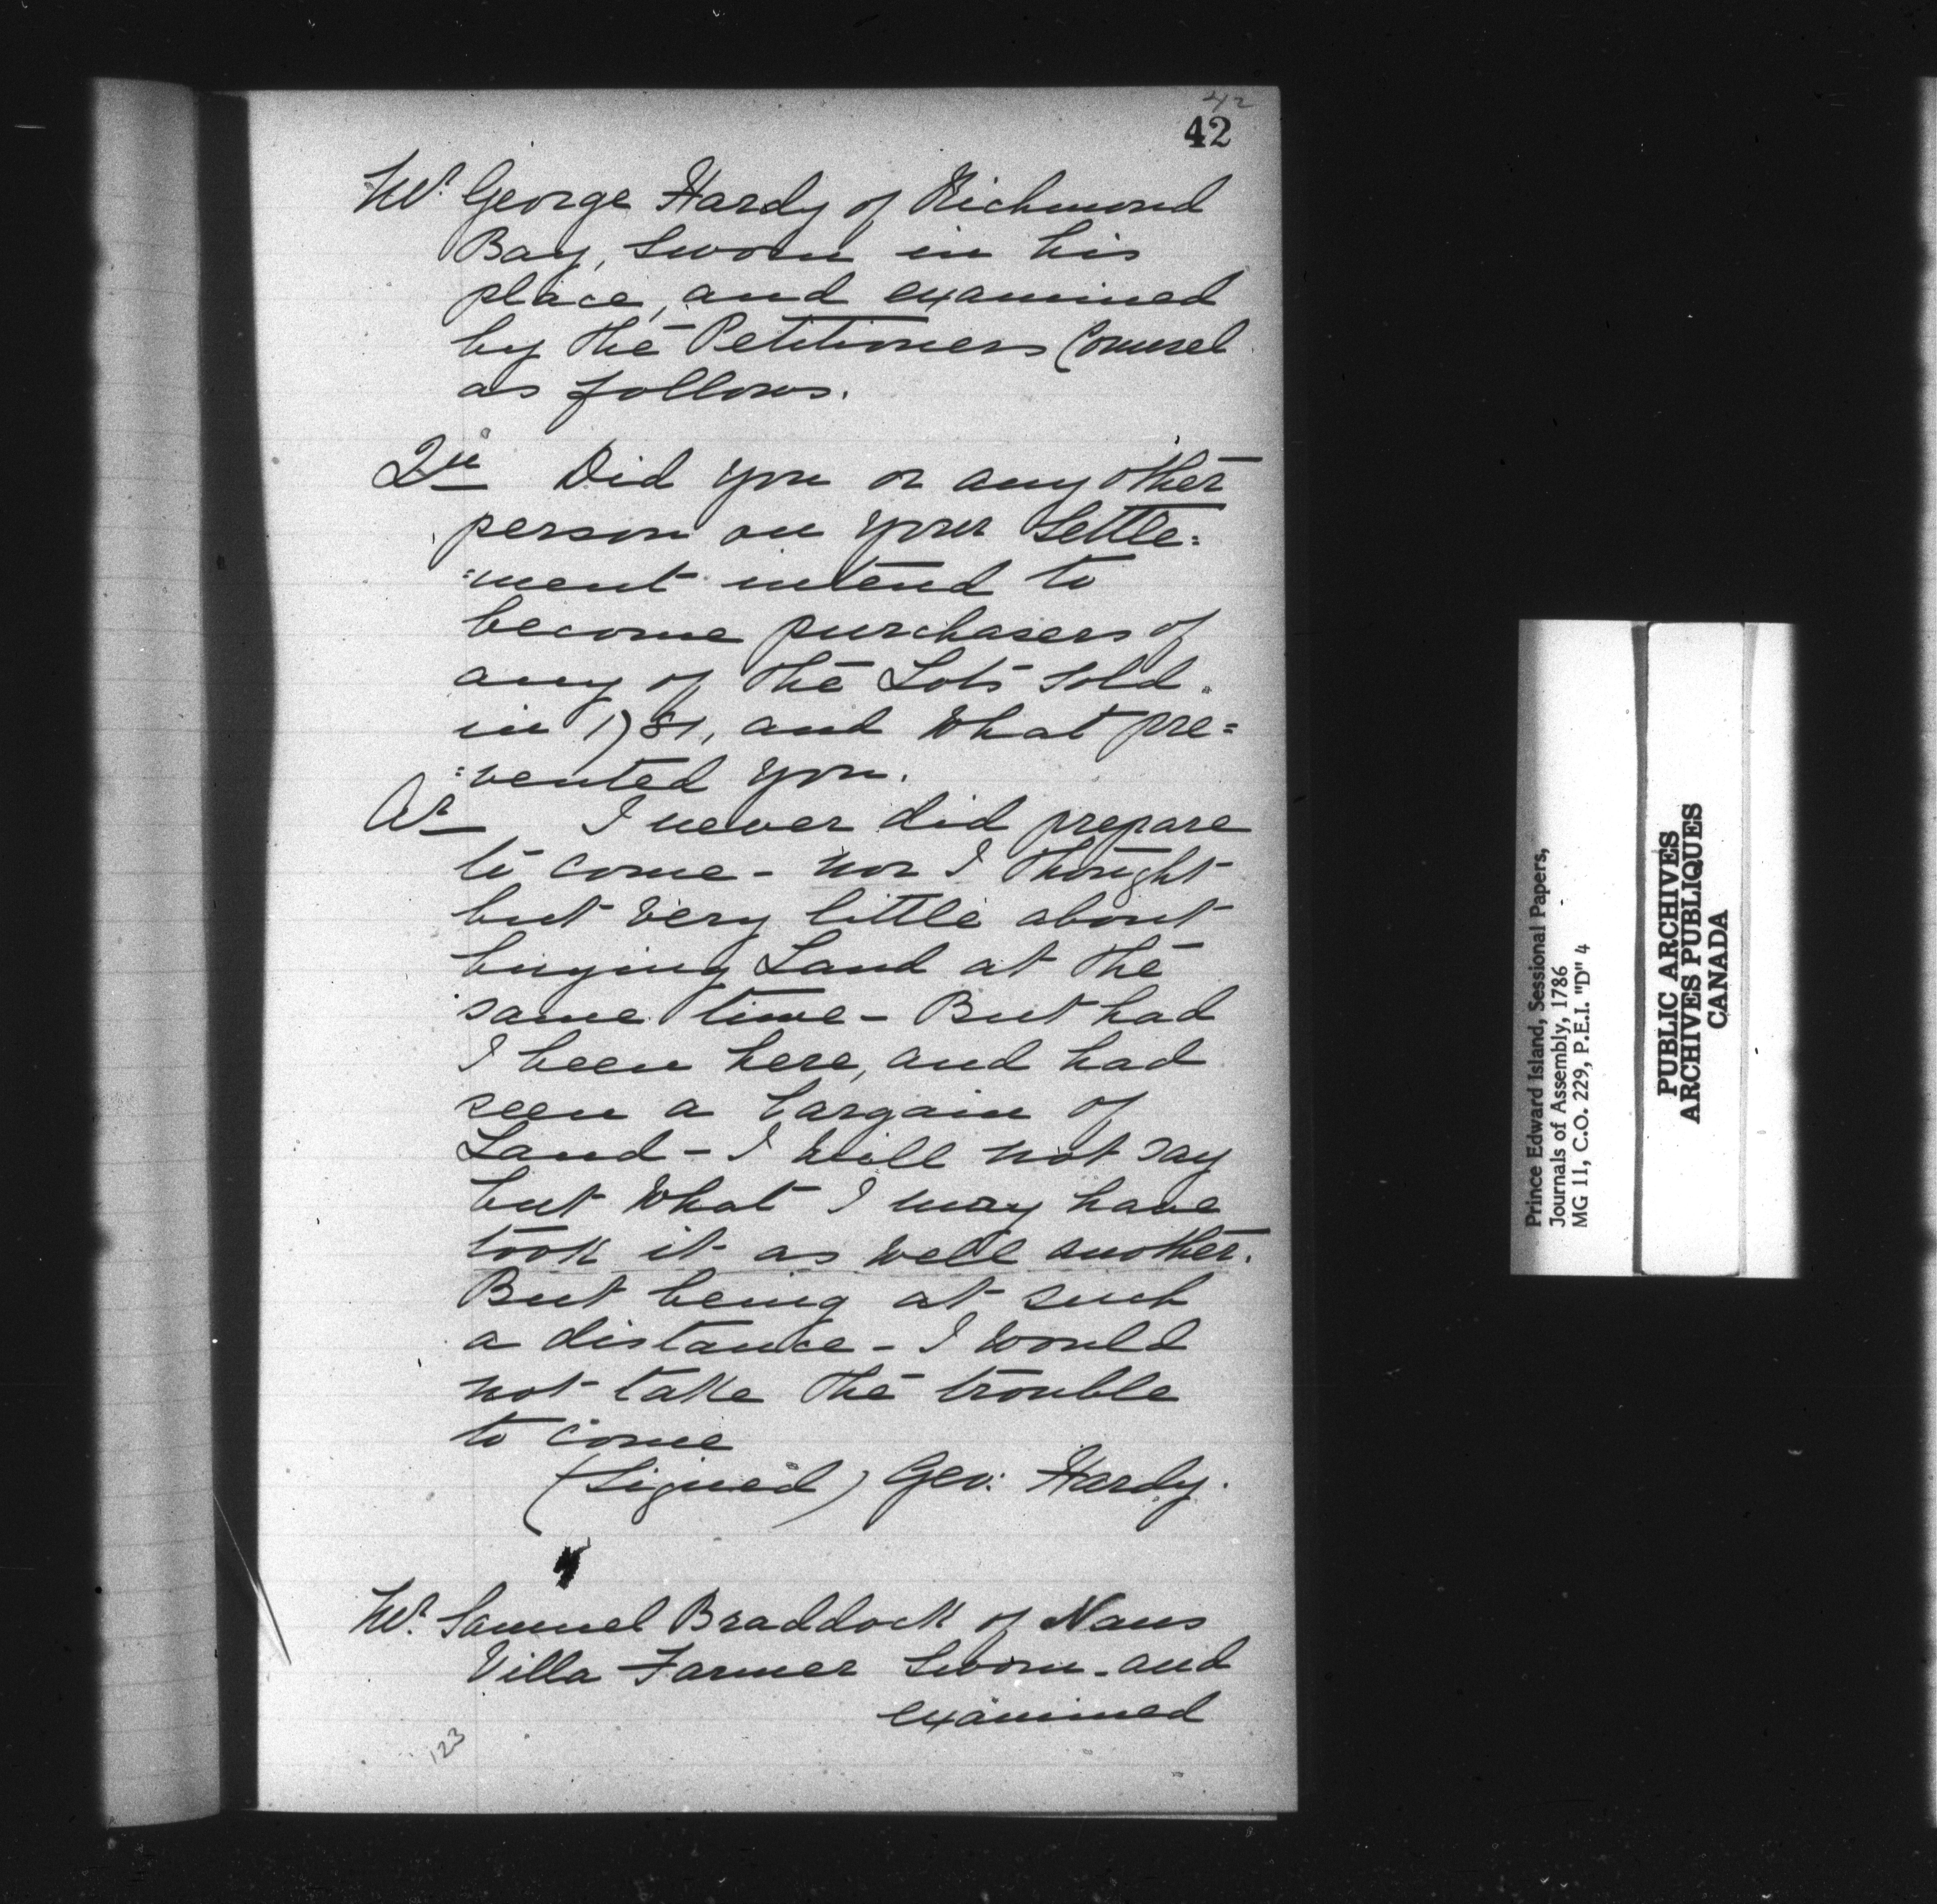 42
42
Mr. George Hardy of Richmond
Bay, sworn in his
place, and examined
by the Petitioners Counsel
as follows.
Qu Did you or any other
person on your Settle=
=ment intend to
become purchasers of
any of the Lots sold
in 1781, and what pre=
=vented you.
Ar I never did prepare
to come - nor I thought
but very little about
buying Land at the
same time - But had
I been here, and had
seen a bargain of
Land - I will not say
but what I may have
took it as well another.
But being at such
a distance - I would
not take the trouble
to come
(Signed) Geo: Hardy.
Mr. Samuel Braddock of Naus
Villa Farmer Sworn - and
examined
123
Prince Edward Island, Sessional Papers,
Journals of Assembly, 1786
MG 11, C.O. 229, P.E.I. "D" 4
PUBLIC ARCHIVES
ARCHIVES PUBLIQUES
CANADA